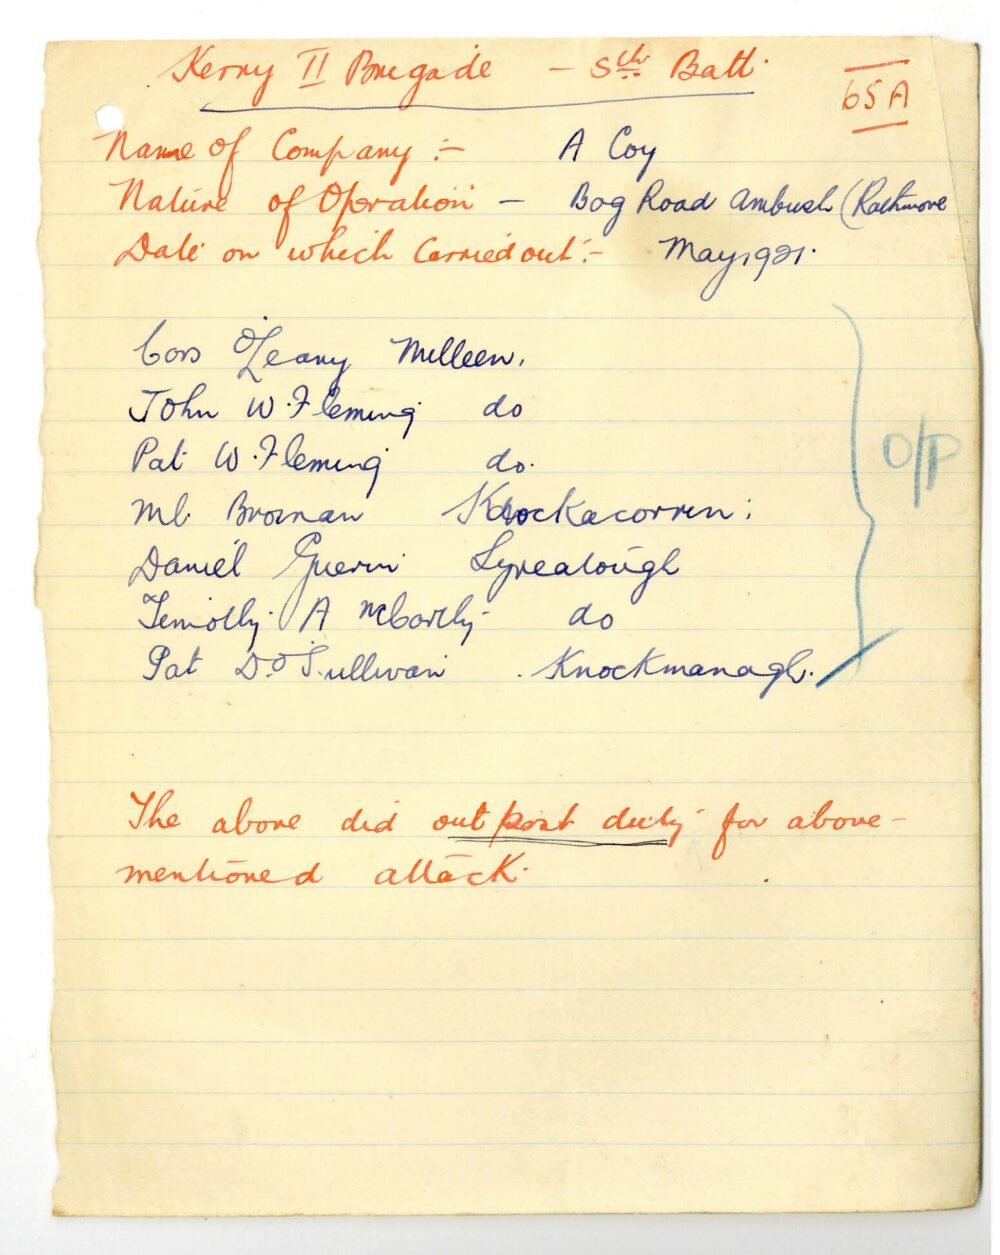 Kerry II Brigade — 5th Batt.
65A
Name of Company :- A Coy
Nature of Operation — Bog Road Ambush (Rathmore
Date on which Carried out :- May 1921.
Cors O'Leary Milleen.
John W. Fleming do
Pat W. Fleming do.
Ml. Brosnan Knockacorrin :
Daniel Guerin Lyrealough
Timothy A McCarthy do
Pat D. O'Sullivan . Knockmanagh.
O/P
The above did outpost duty for above-
mentioned attack.